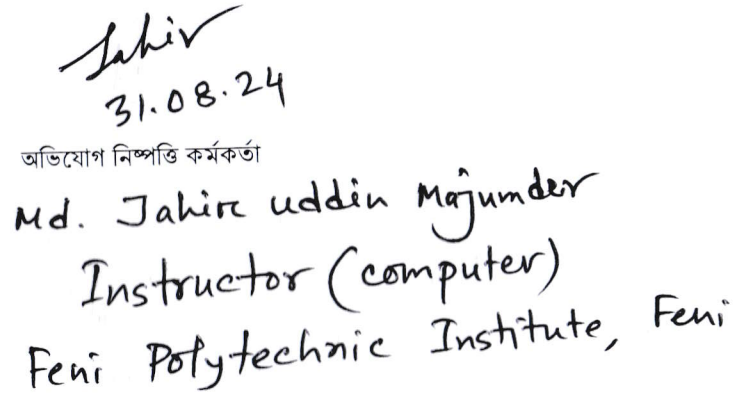 Jahir
31.08.24
অভিযোগ নিষ্পত্তি কর্মকর্তা
Md. Jahir uddin Majumder
Instructor (computer)
Feni Polytechnic Institute, Feni